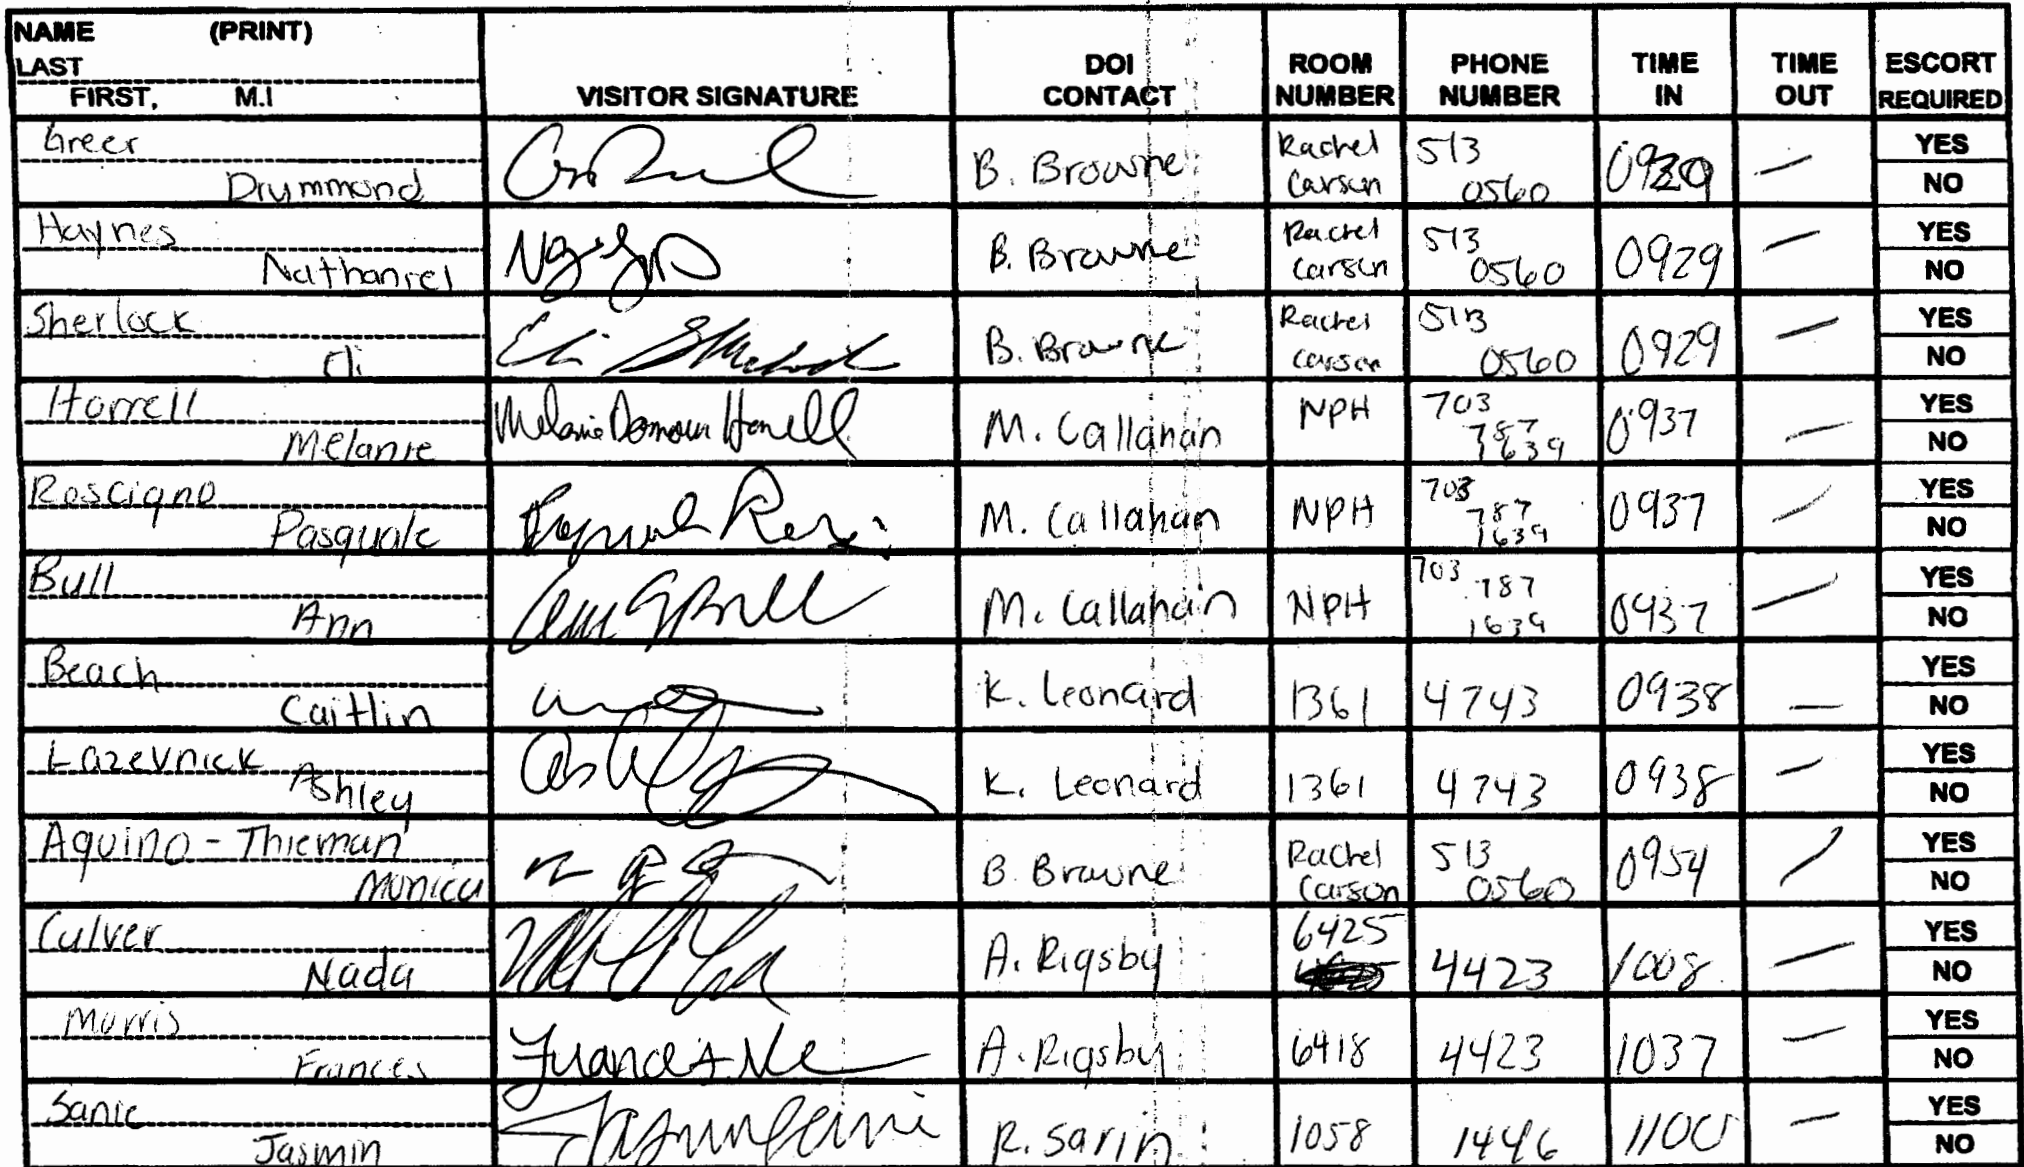 NAME (PRINT)
LAST
FIRST, M.I
VISITOR SIGNATURE
DOI CONTACT
ROOM NUMBER
PHONE NUMBER
TIME IN
TIME OUT
ESCORT REQUIRED
Greer
Drummond
B. Browne
Rachel Carson
513 0560
0929
—
YES
NO
Haynes
Nathaniel
B. Browne
Rachel Carson
513 0560
0929
—
YES
NO
Sherlock
Eli
Eli Sherlock
B. Browne
Rachel Carson
513 0560
0929
—
YES
NO
Horrell
Melanie
M. Callahan
NPH
703 787 1639
0937
—
YES
NO
Roscigno
Pasquale
M. Callahan
NPH
703 787 1639
0937
—
YES
NO
Bull
Ann
M. Callahan
NPH
703 787 1639
0937
—
YES
NO
Beach
Caitlin
K. Leonard
1361
4743
0938
—
YES
NO
Lazevnick
Ashley
K. Leonard
1361
4743
0938
—
YES
NO
Aquino-Thieman
Monica
B. Browne
Rachel Carson
513 0560
0954
—
YES
NO
Culver
Nada
A. Rigsby
6425
4423
1008
—
YES
NO
Morris
Frances
A. Rigsby
6418
4423
1037
—
YES
NO
Sanic
Jasmin
R. Sarin
1058
1446
1100
—
YES
NO